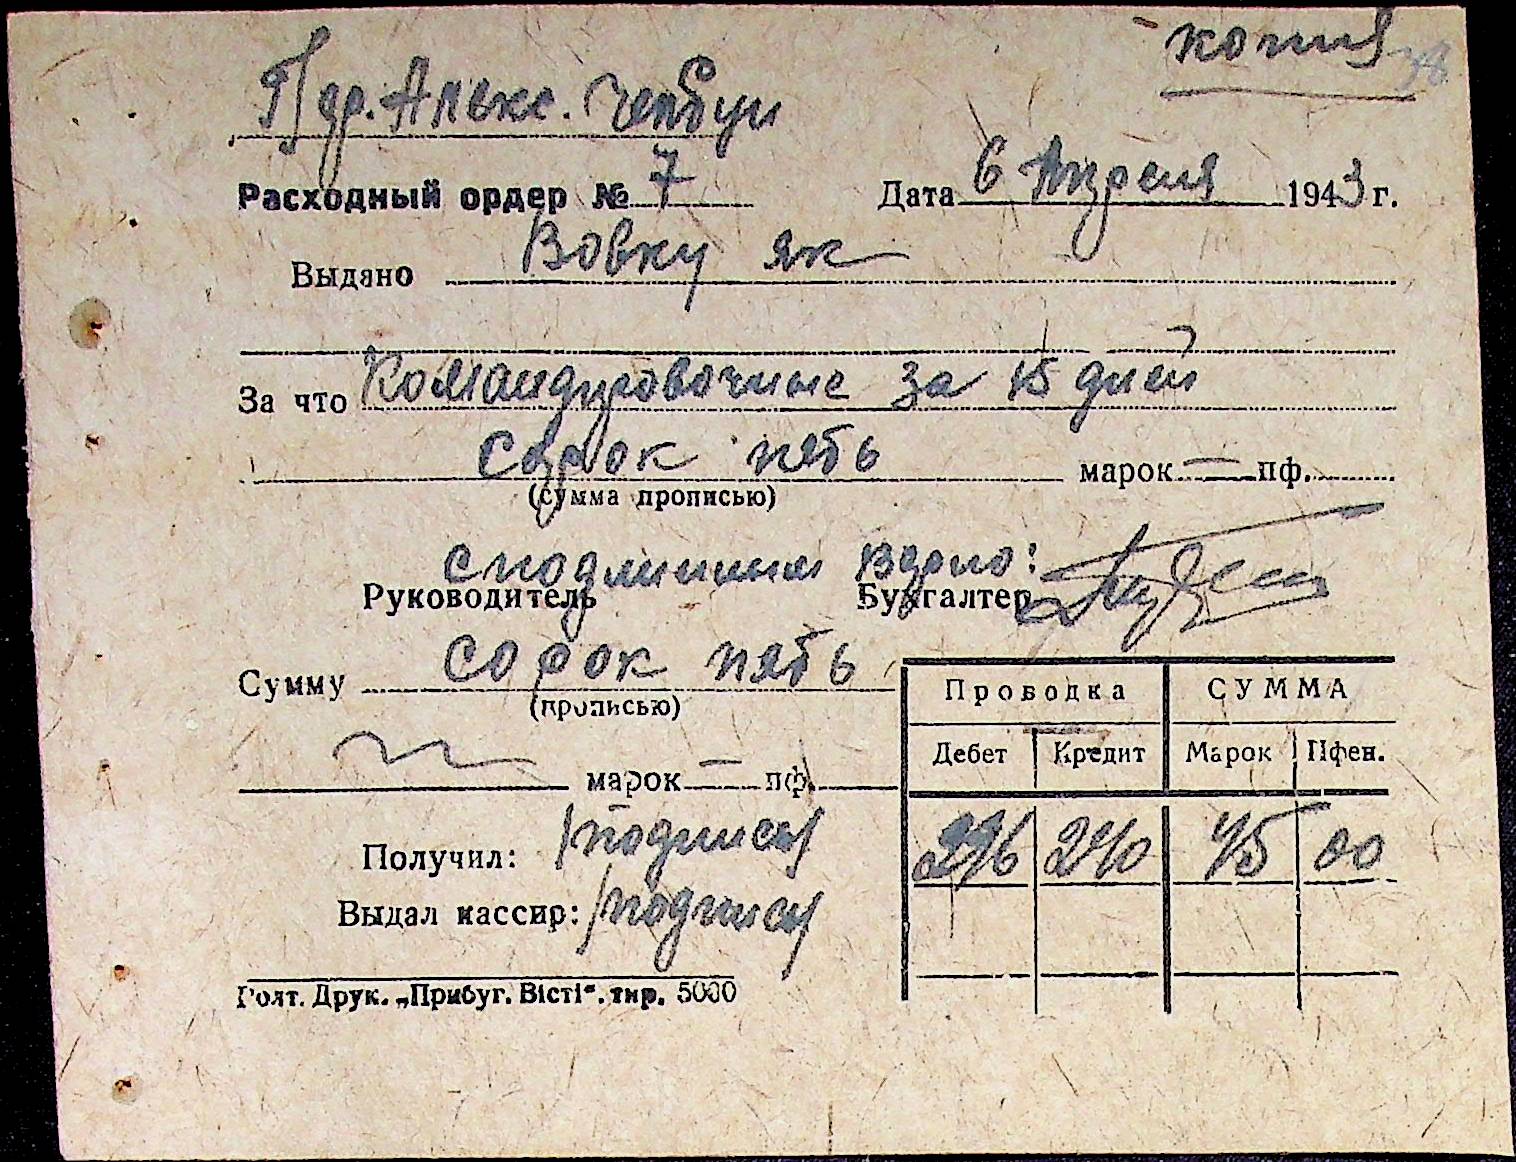 копия
38
Пдр. Алекс.
Расходный ордер № 7 Дата 6 Апреля 1943 г.
Выдано Вовку Як
За что Командировочные за 15 дней
Сорок пять марок — пф.
(сумма прописью)
с подлинным верно:
Руководитель Бухгалтер
Сумму сорок пять
(прописью)
марок — пф.
Получил: /подпись/
Выдал кассир: /подпись/
Проводка СУММА
Дебет Кредит Марок Пфен.
296 240 45 00
Голт. Друк. „Прибуг. Вісті“. тир. 5000